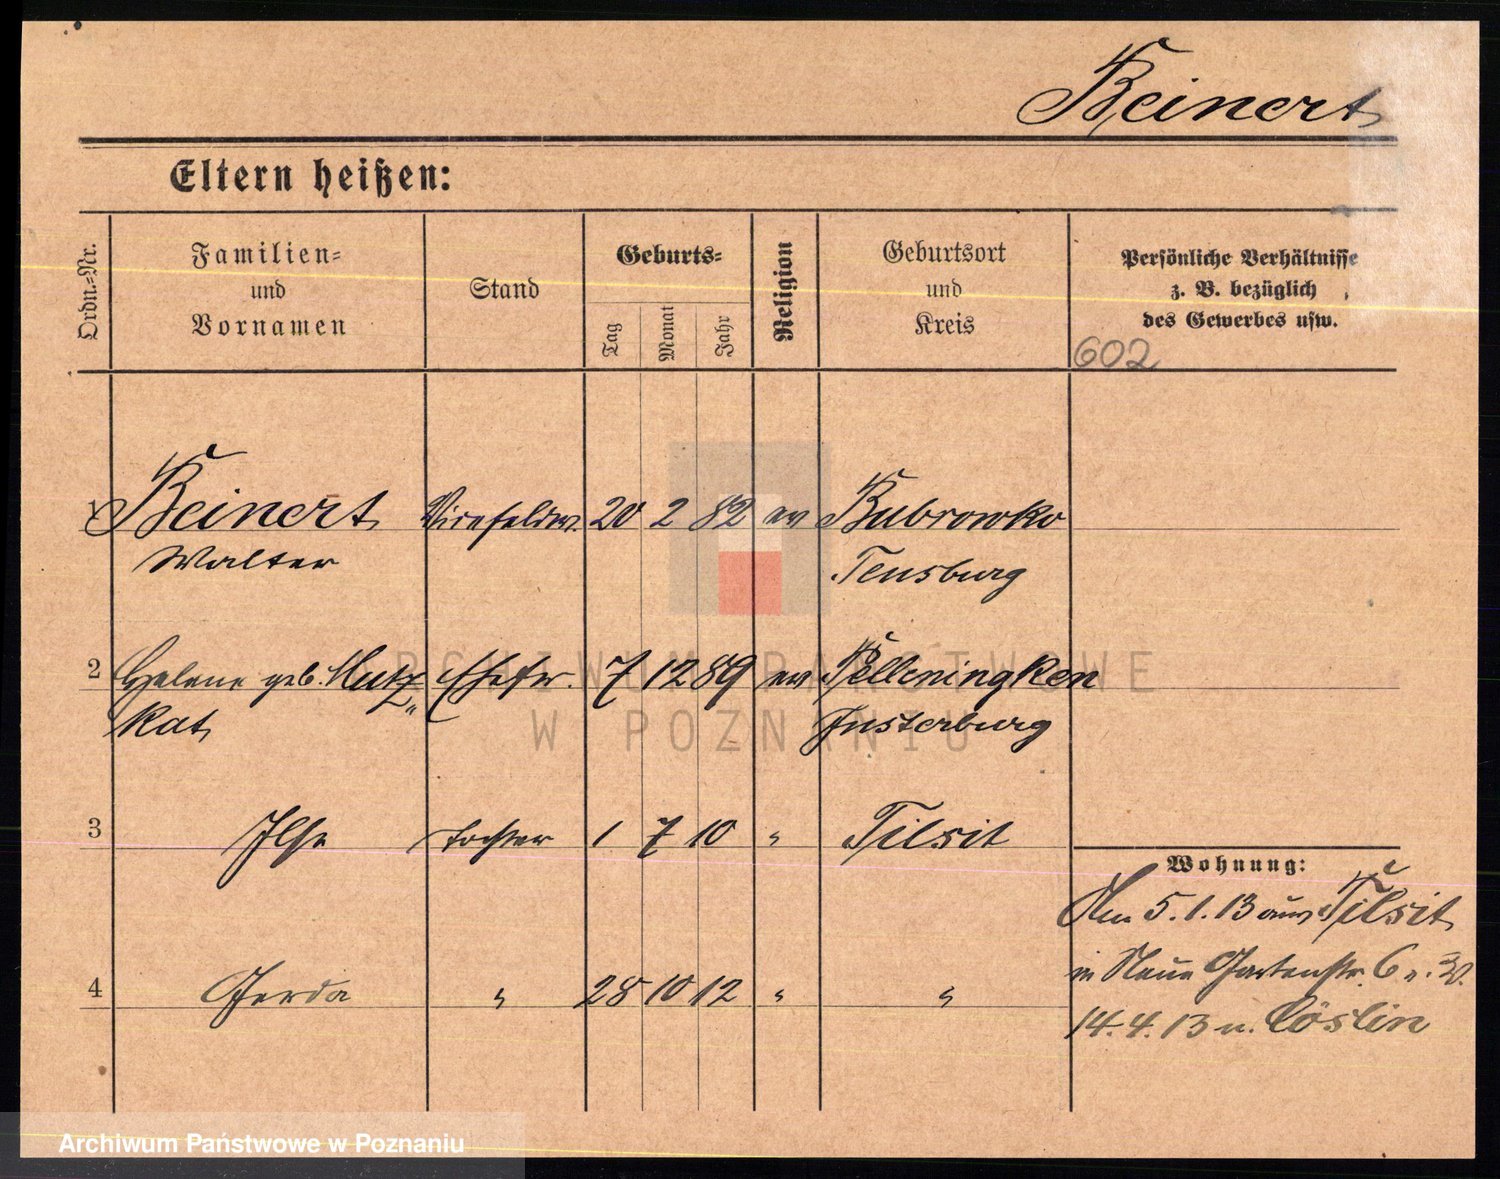 Beinert
Eltern heißen:
Ordn.-Nr.
Familien-
und
Vornamen
Stand
Geburts-
Tag
Monat
Jahr
Religion
Geburtsort
und
Kreis
Persönliche Verhältnisse
z. B. bezüglich
des Gewerbes usw.
602
1 Beinert Vizefeldw. 20 2 82 ev Bubrowko
Walter Sensburg
2 Helene geb. Mutz- Ehefr. 7 12 89 ev Pelleningken
kat Insterburg
3 Ilse Tochter 1 7 10 " Tilsit
4 Gerda " 28 10 12 " "
Wohnung:
Am 5.1.13 aus Tilsit
in Neue Gartenstr. 6
14.4.13 n. Cöslin
ARCHIWUM PAŃSTWOWE
W POZNANIU
Archiwum Państwowe w Poznaniu